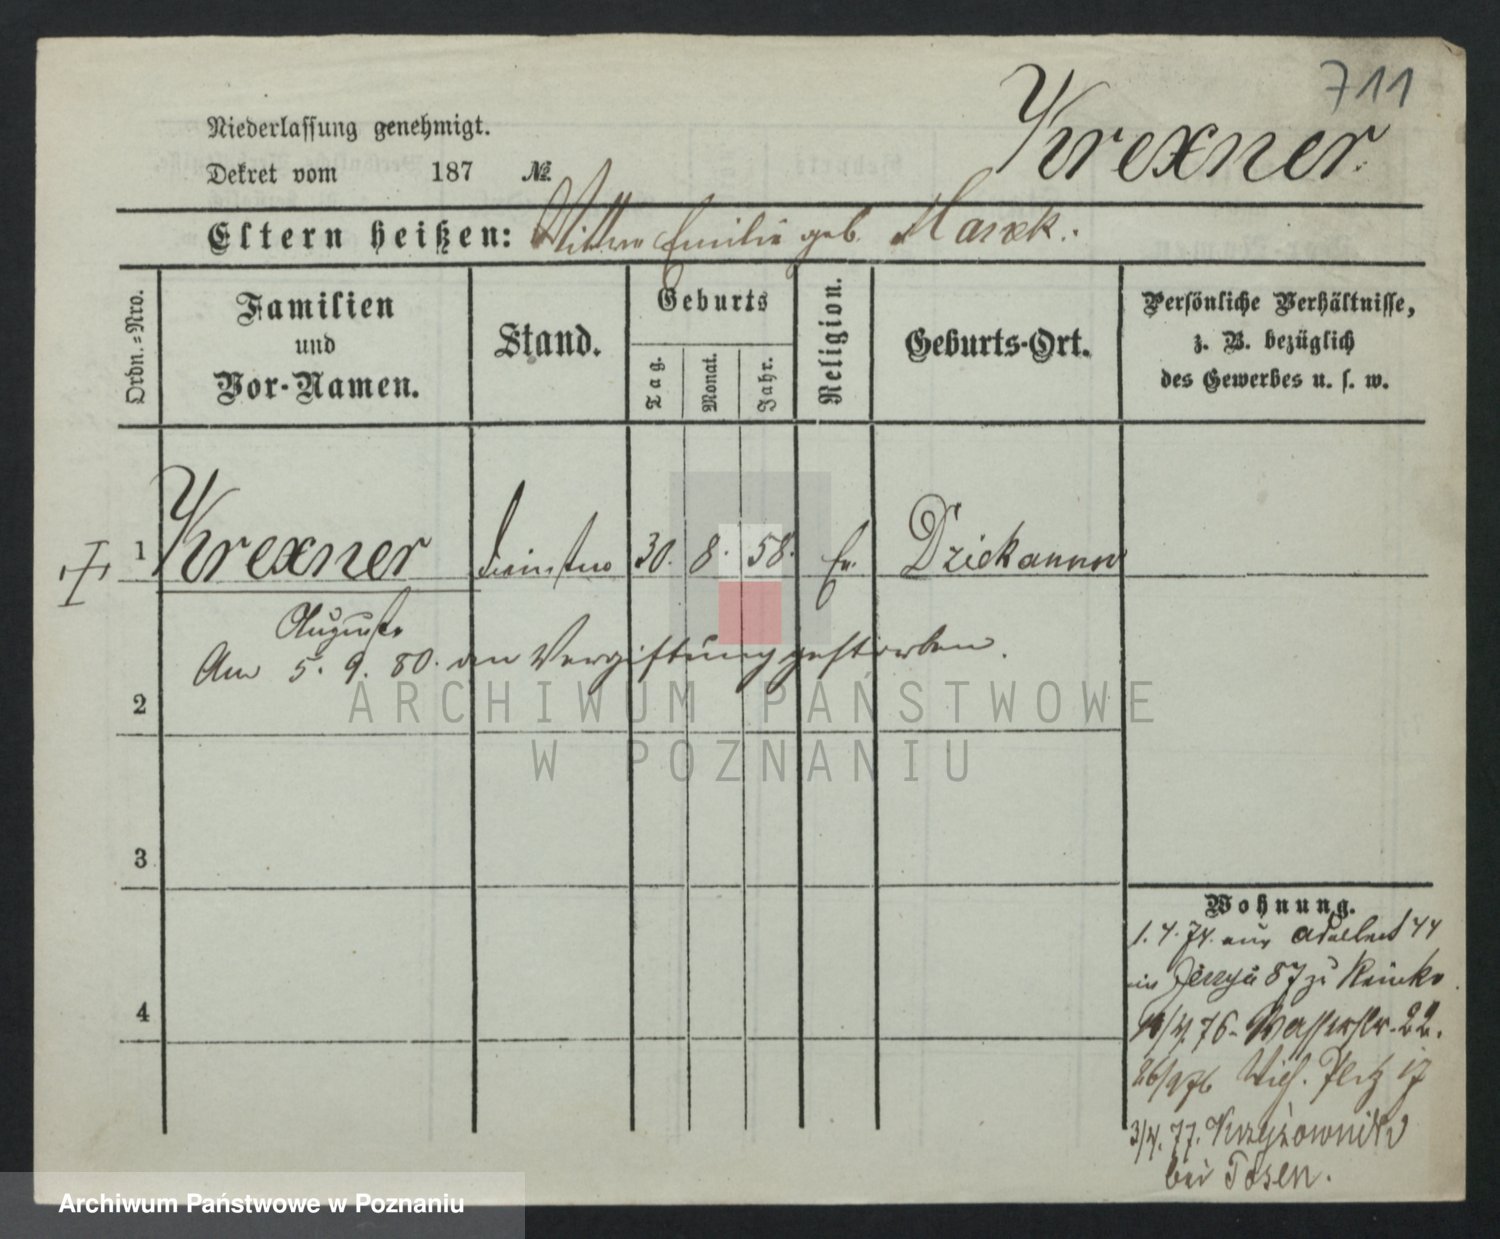 711
Krexner.
Niederlassung genehmigt.
Dekret vom 187 №
Eltern heißen: Wittwe Emilie geb. Marsek.
Ordn.-Nro.
Familien
und
Vor-Namen.
Stand.
Geburts
Tag.
Monat.
Jahr.
Religion.
Geburts-Ort.
Persönliche Verhältnisse,
z. B. bezüglich
des Gewerbes u. s. w.
1 Krexner 30. 8. 58. Ev. Dziekanow
Auguste
Am 5. 9. 80. an Vergiftung gestorben.
2
ARCHIWUM PAŃSTWOWE
W POZNANIU
3
4
Wohnung.
1. 4. 74. aus Adalbert 44
in 87 zu
76. Wasserstr. 22.
26/9 76
3/4. 77. Krzyżownik
bei Posen.
Archiwum Państwowe w Poznaniu